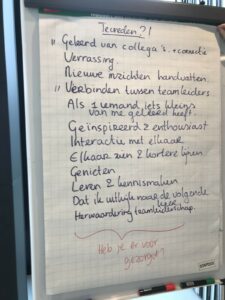 Tevreden ?!
" Geleerd van collega's. + connectie
Verrassing.
Nieuwe inzichten handvatten
" Verbinden tussen teamleiders.
Als 1 iemand iets kleins
van me geleerd heeft.
Geïnspireerd & enthousiast
Interactie met elkaar
Elkaar zien & kortere lijnen
Genieten
Leren & kennismaken
Dat ik uitkijk naar de volgende
keer
Herwaardering teamleiderschap.
Heb je er voor
gezorgd?